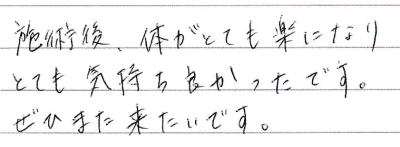 施術後、体がとても楽になり
とても気持ち良かったです。
ぜひまた来たいです。